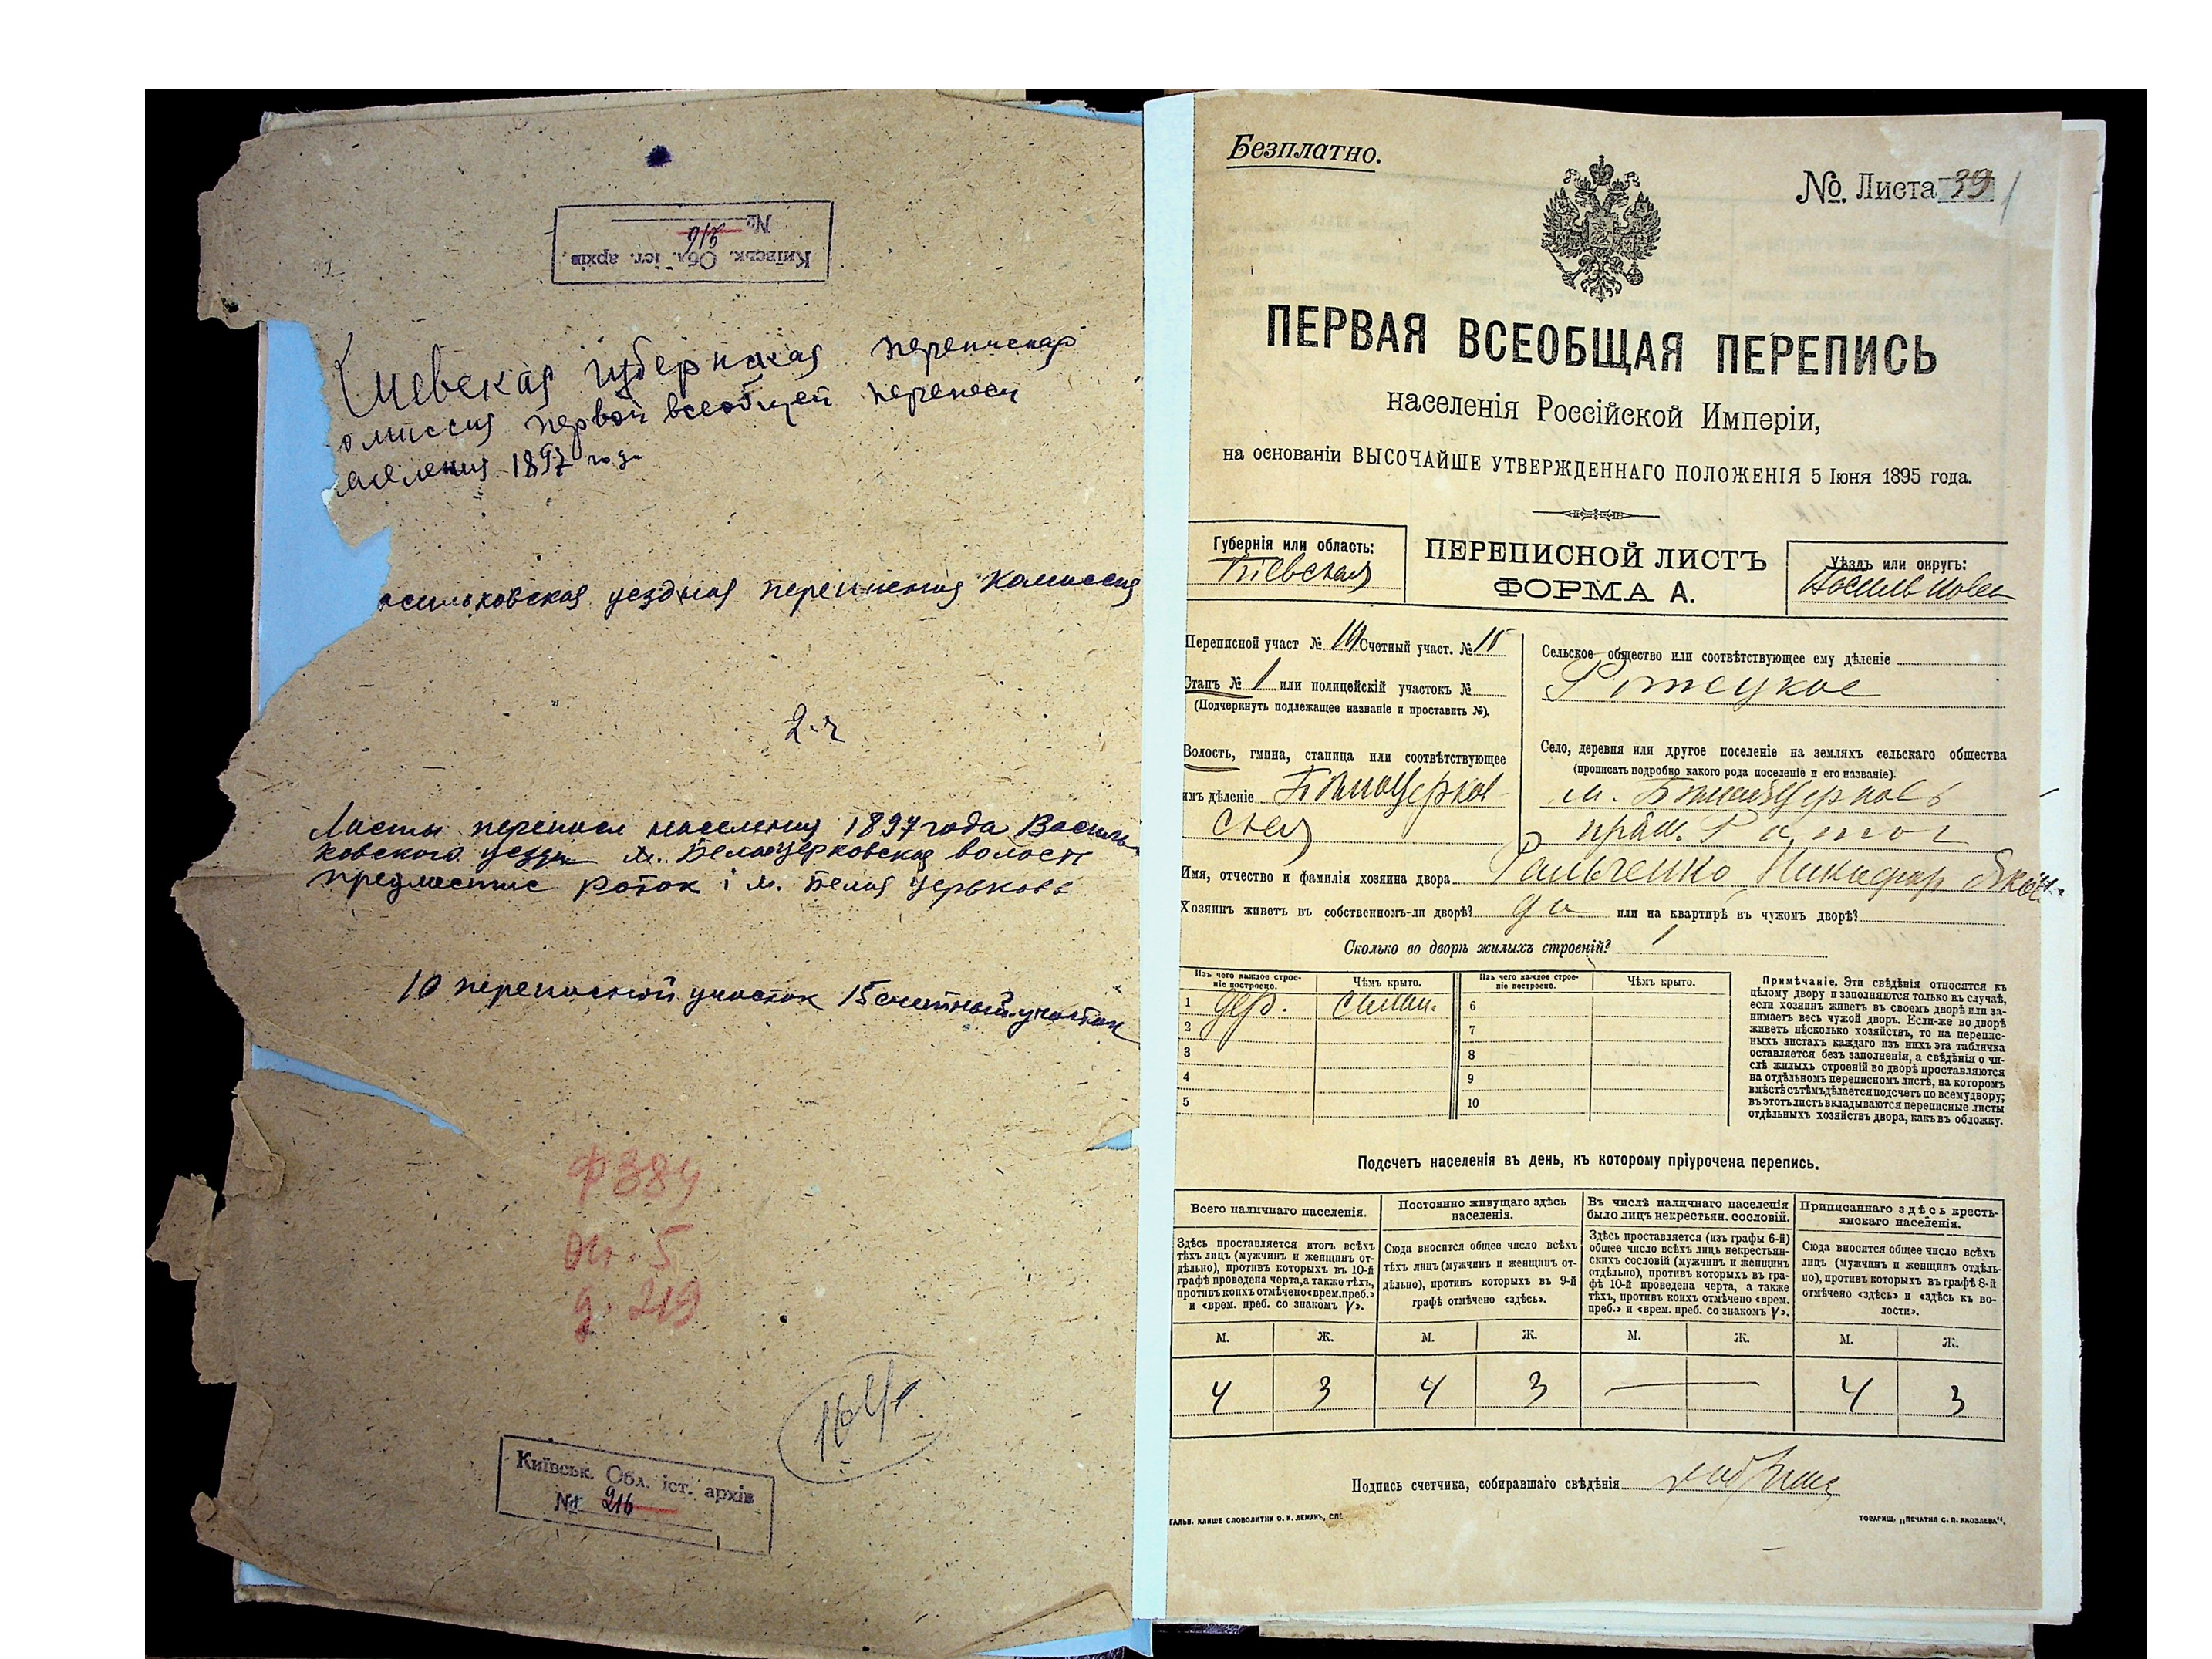 Київськ. Обл. іст. архів
№ 216
Киевская губернская переписная
омиссия первой всеобщей переписи
аселения 1897 года
асильковская уездная переписная комиссия
2-ч
Листы переписи населения 1897 года Василь-
ковского уезда м. Белоцерковская волость
предместие Роток і м. Белая Церьковь
10 переписной участок 15 счетный участок
Ф 384
оп. 5
д. 219
Київськ. Обл. іст. архів
№ 216
Безплатно.
№ Листа 39
ПЕРВАЯ ВСЕОБЩАЯ ПЕРЕПИСЬ
населенія Россійской Имперіи,
на основаніи ВЫСОЧАЙШЕ УТВЕРЖДЕННАГО ПОЛОЖЕНІЯ 5 Іюня 1895 года.
Губернія или область:
Кіевская
ПЕРЕПИСНОЙ ЛИСТЪ
ФОРМА А.
Уѣздъ или округъ:
Васильков
Переписной участ № 10 Счетный участ. № 15
Станъ № 1 или полицейскій участокъ №
(Подчеркнуть подлежащее названіе и проставить №).
Волость, гмина, станица или соотвѣтствующее
имъ дѣленіе Бѣлоцерков
ская
Сельское общество или соотвѣтствующее ему дѣленіе
Ротецкое
Село, деревня или другое поселеніе на земляхъ сельскаго общества
(прописать подробно какого рода поселеніе и его названіе).
м. Бѣлая Церковь
пред. Роток
Имя, отчество и фамилія хозяина двора Гальченко Никифор Яков.
Хозяинъ живетъ въ собственномъ-ли дворѣ? да или на квартирѣ въ чужомъ дворѣ?
Сколько во дворѣ жилыхъ строеній? 1
Изъ чего каждое строе-
ніе построено.
Чѣмъ крыто.
Изъ чего каждое строе-
ніе построено.
Чѣмъ крыто.
1 дер. солом. 6
2 7
3 8
4 9
5 10
Примѣчаніе. Эти свѣдѣнія относятся къ
цѣлому двору и заполняются только въ случаѣ,
если хозяинъ живетъ въ своемъ дворѣ или за-
нимаетъ весь чужой дворъ. Если-же во дворѣ
живетъ нѣсколько хозяйствъ, то на перепис-
ныхъ листахъ каждаго изъ нихъ эта табличка
оставляется безъ заполненія, а свѣдѣнія о чи-
слѣ жилыхъ строеній во дворѣ проставляются
на отдѣльномъ переписномъ листѣ, на которомъ
вмѣстѣ съ тѣмъ дѣлается подсчетъ по всему двору;
въ этотъ листъ вкладываются переписные листы
отдѣльныхъ хозяйствъ двора, какъ въ обложку.
Подсчетъ населенія въ день, къ которому пріурочена перепись.
Всего наличнаго населенія.
Здѣсь проставляется итогъ всѣхъ
тѣхъ лицъ (мужчинъ и женщинъ от-
дѣльно), противъ которыхъ въ 10-й
графѣ проведена черта, а также тѣхъ,
противъ коихъ отмѣчено «врем. преб.»
и «врем. преб. со знакомъ V».
Постоянно живущаго здѣсь
населенія.
Сюда вносится общее число всѣхъ
тѣхъ лицъ (мужчинъ и женщинъ от-
дѣльно), противъ которыхъ въ 9-й
графѣ отмѣчено «здѣсь».
Въ числѣ наличнаго населенія
было лицъ некрестьян. сословій.
Здѣсь проставляется (изъ графы 6-й)
общее число всѣхъ лицъ некрестьян-
скихъ сословій (мужчинъ и женщинъ
отдѣльно), противъ которыхъ въ гра-
фѣ 10-й проведена черта, а также
тѣхъ, противъ коихъ отмѣчено «врем.
преб.» и «врем. преб. со знакомъ V».
Приписаннаго здѣсь кресть-
янскаго населенія.
Сюда вносится общее число всѣхъ
лицъ (мужчинъ и женщинъ отдѣль-
но), противъ которыхъ въ графѣ 8-й
отмѣчено «здѣсь» и «здѣсь къ во-
лости».
М. Ж. М. Ж. М. Ж. М. Ж.
4 3 4 3 — 4 3
Подпись счетчика, собиравшаго свѣдѣнія
ГАЛЬВ. КЛИШЕ СЛОВОЛИТНИ О. И. ЛЕМАНЪ, СПБ
ТОВАРИЩ. „ПЕЧАТНЯ С. П. ЯКОВЛЕВА“.